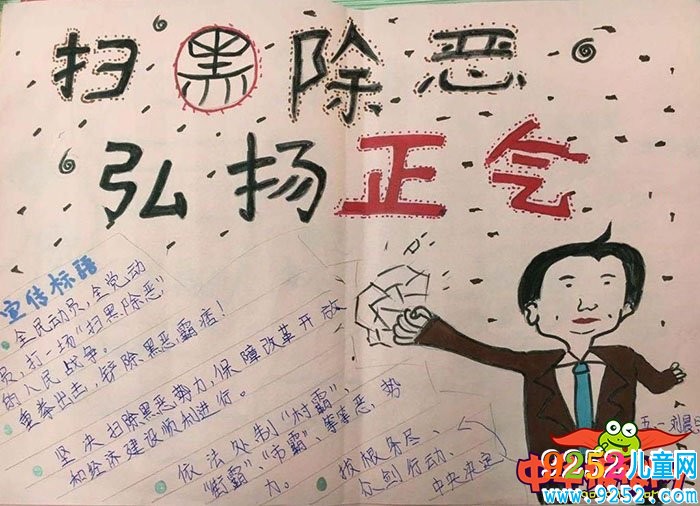 扫黑除恶
弘扬正气
宣传标语
全民动员,全党动
员,打一场“扫黑.除恶”
的人民战争。
重拳出击,铲除黑恶霸痞!
坚决扫除黑恶势力,保障改革开放
和经济建设顺利进行。
依法处制“村霸”、
“街霸”、“市霸”、等等恶势
力。
中央决定
五二刘晨
9252儿童网
www.9252.com